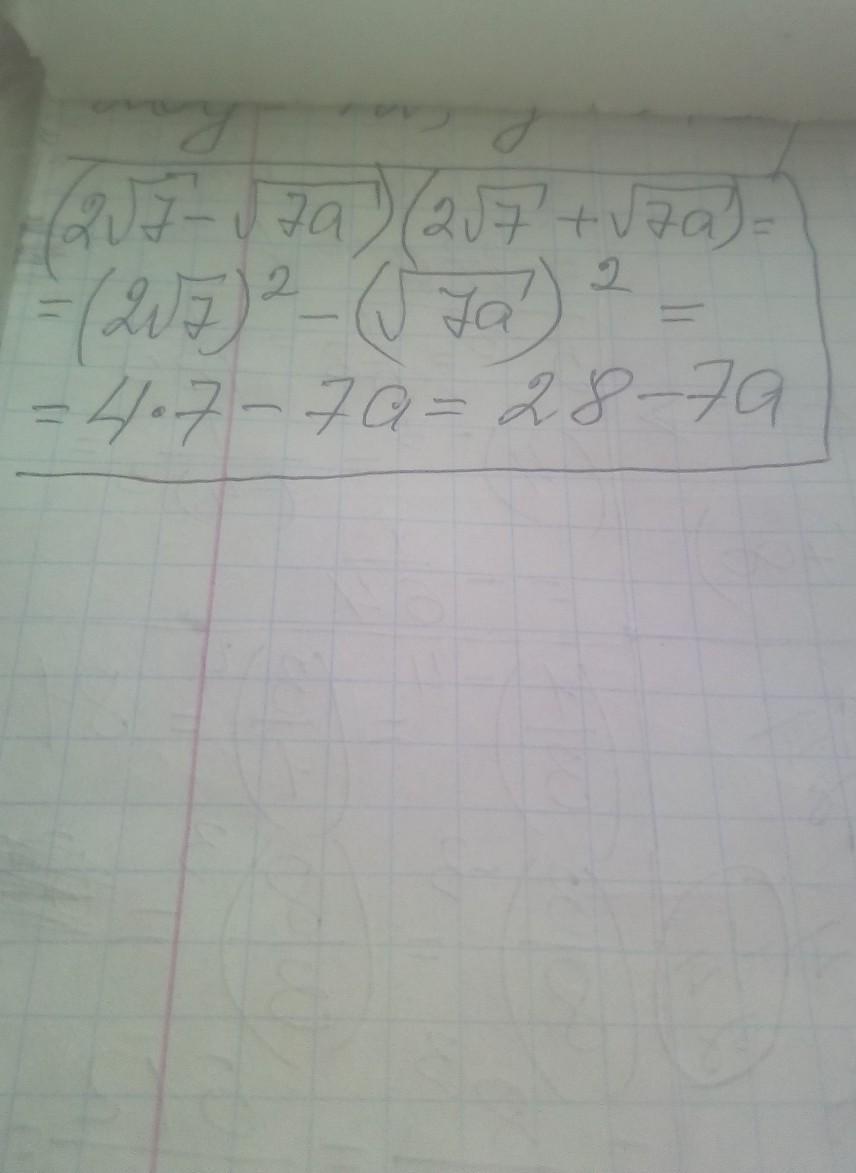 (2√7-√7a)(2√7+√7a)=
=(2√7)²-(√7a)²=
=4·7-7a=28-7a